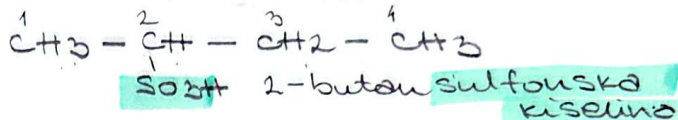 1 2 3 4
CH3 - CH - CH2 - CH3
SO3H 2-butan sulfonska
kiselina